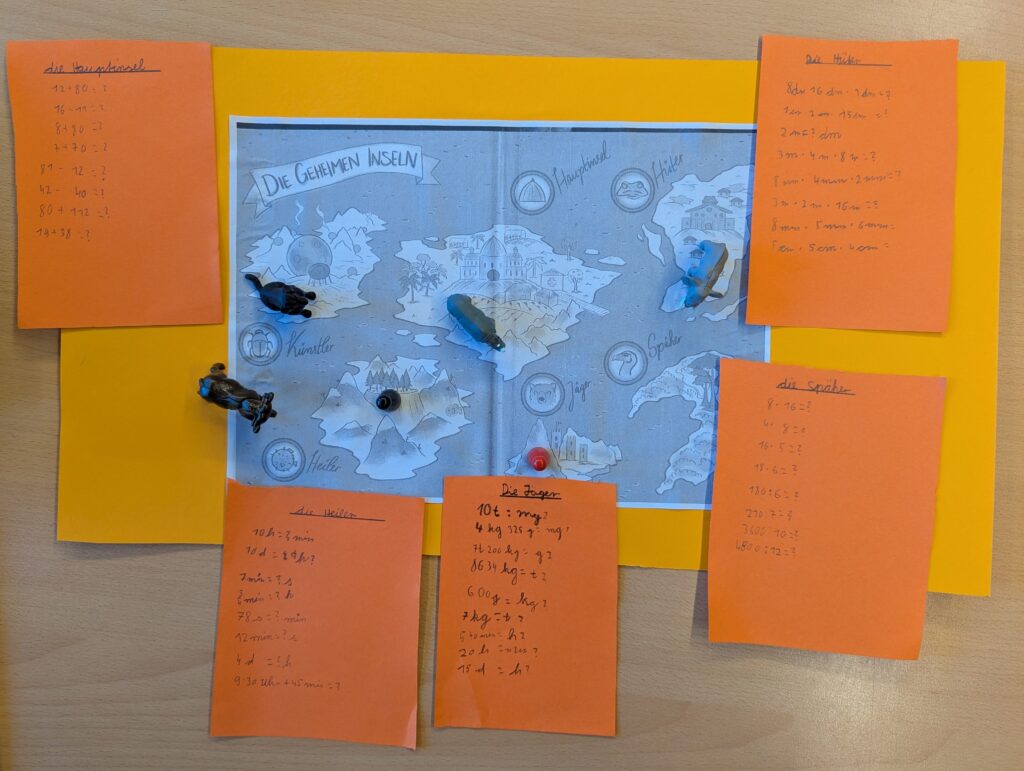 die Hauptinsel
12+80=?
16-11=?
8+80=?
7+70=?
81-12=?
42-40=?
80+112=?
19+38=?
DIE GEHEIMEN INSELN
Hauptinsel
Hüter
Künstler
Späher
Jäger
Heiler
Die Hüter
8dm·16 dm·
2m=? dm
3m·4m·8m=?
8mm·4mm·2mm=?
3m·2m·16m=?
8mm·5mm·6mm=
5cm·5cm·4cm=
die Späher
8·16=?
4·8=?
16·5=?
18·6=?
180:6=?
210:7=?
3600:10=?
4800:12=?
die Heiler
10h=? min
10d=h?
7min=? s
min=? h
78s=? min
12min=? s
4d=? h
9:30 Uhr+45min=?
Die Jäger
10t=mg?
4kg 325g=mg?
7t 200kg=g?
8634kg=t?
600g=kg?
7kg=t?
min=h?
20h=min?
15d=h?